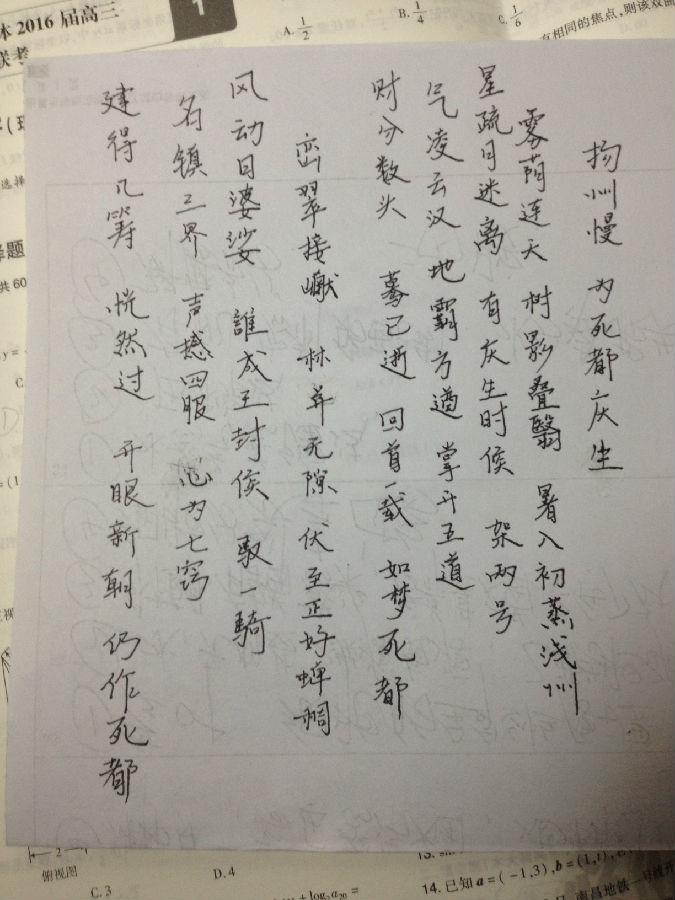 扬州慢 为死都庆生
雾荫连天 树影叠翳 暑入初蒸浅州
星疏月迷离 有庆生时候 架两号
气凌云汉 地霸方遒 掌升五道
财分数头 蓦已逝 回首一载 如梦死都
峦翠接巘 林 无隙 伏至正好蝉稠
风动日婆娑 誰成王封侯 驭一骑
名镇三界 声撼四服 心为七窍
建得几筹 恍然过 开眼新朝 仍作死都
本 2016 届高三
联考
1
A. 1/2
B. 1/4
C. 1/6
有相同的焦点,则该双曲
选择
择题
共 60
俯视图
C. 3
D. 4
14. 已知 a = ( -1,3), b = (1,t),
南昌地铁一号线